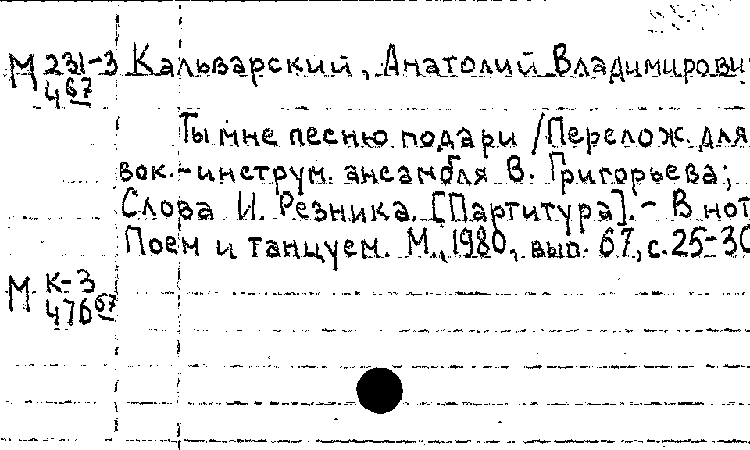 М 231-3 Кальварский, Анатолий Владимирови
4 67
Ты мне песню подари /Перелож. для
вок.-инструм. ансамбля В. Григорьева;
Слова И. Резника. [Партитура]. - В нот
Поем и танцуем. М., 1980, вып. 67, с. 25-30
М К-3
476 67